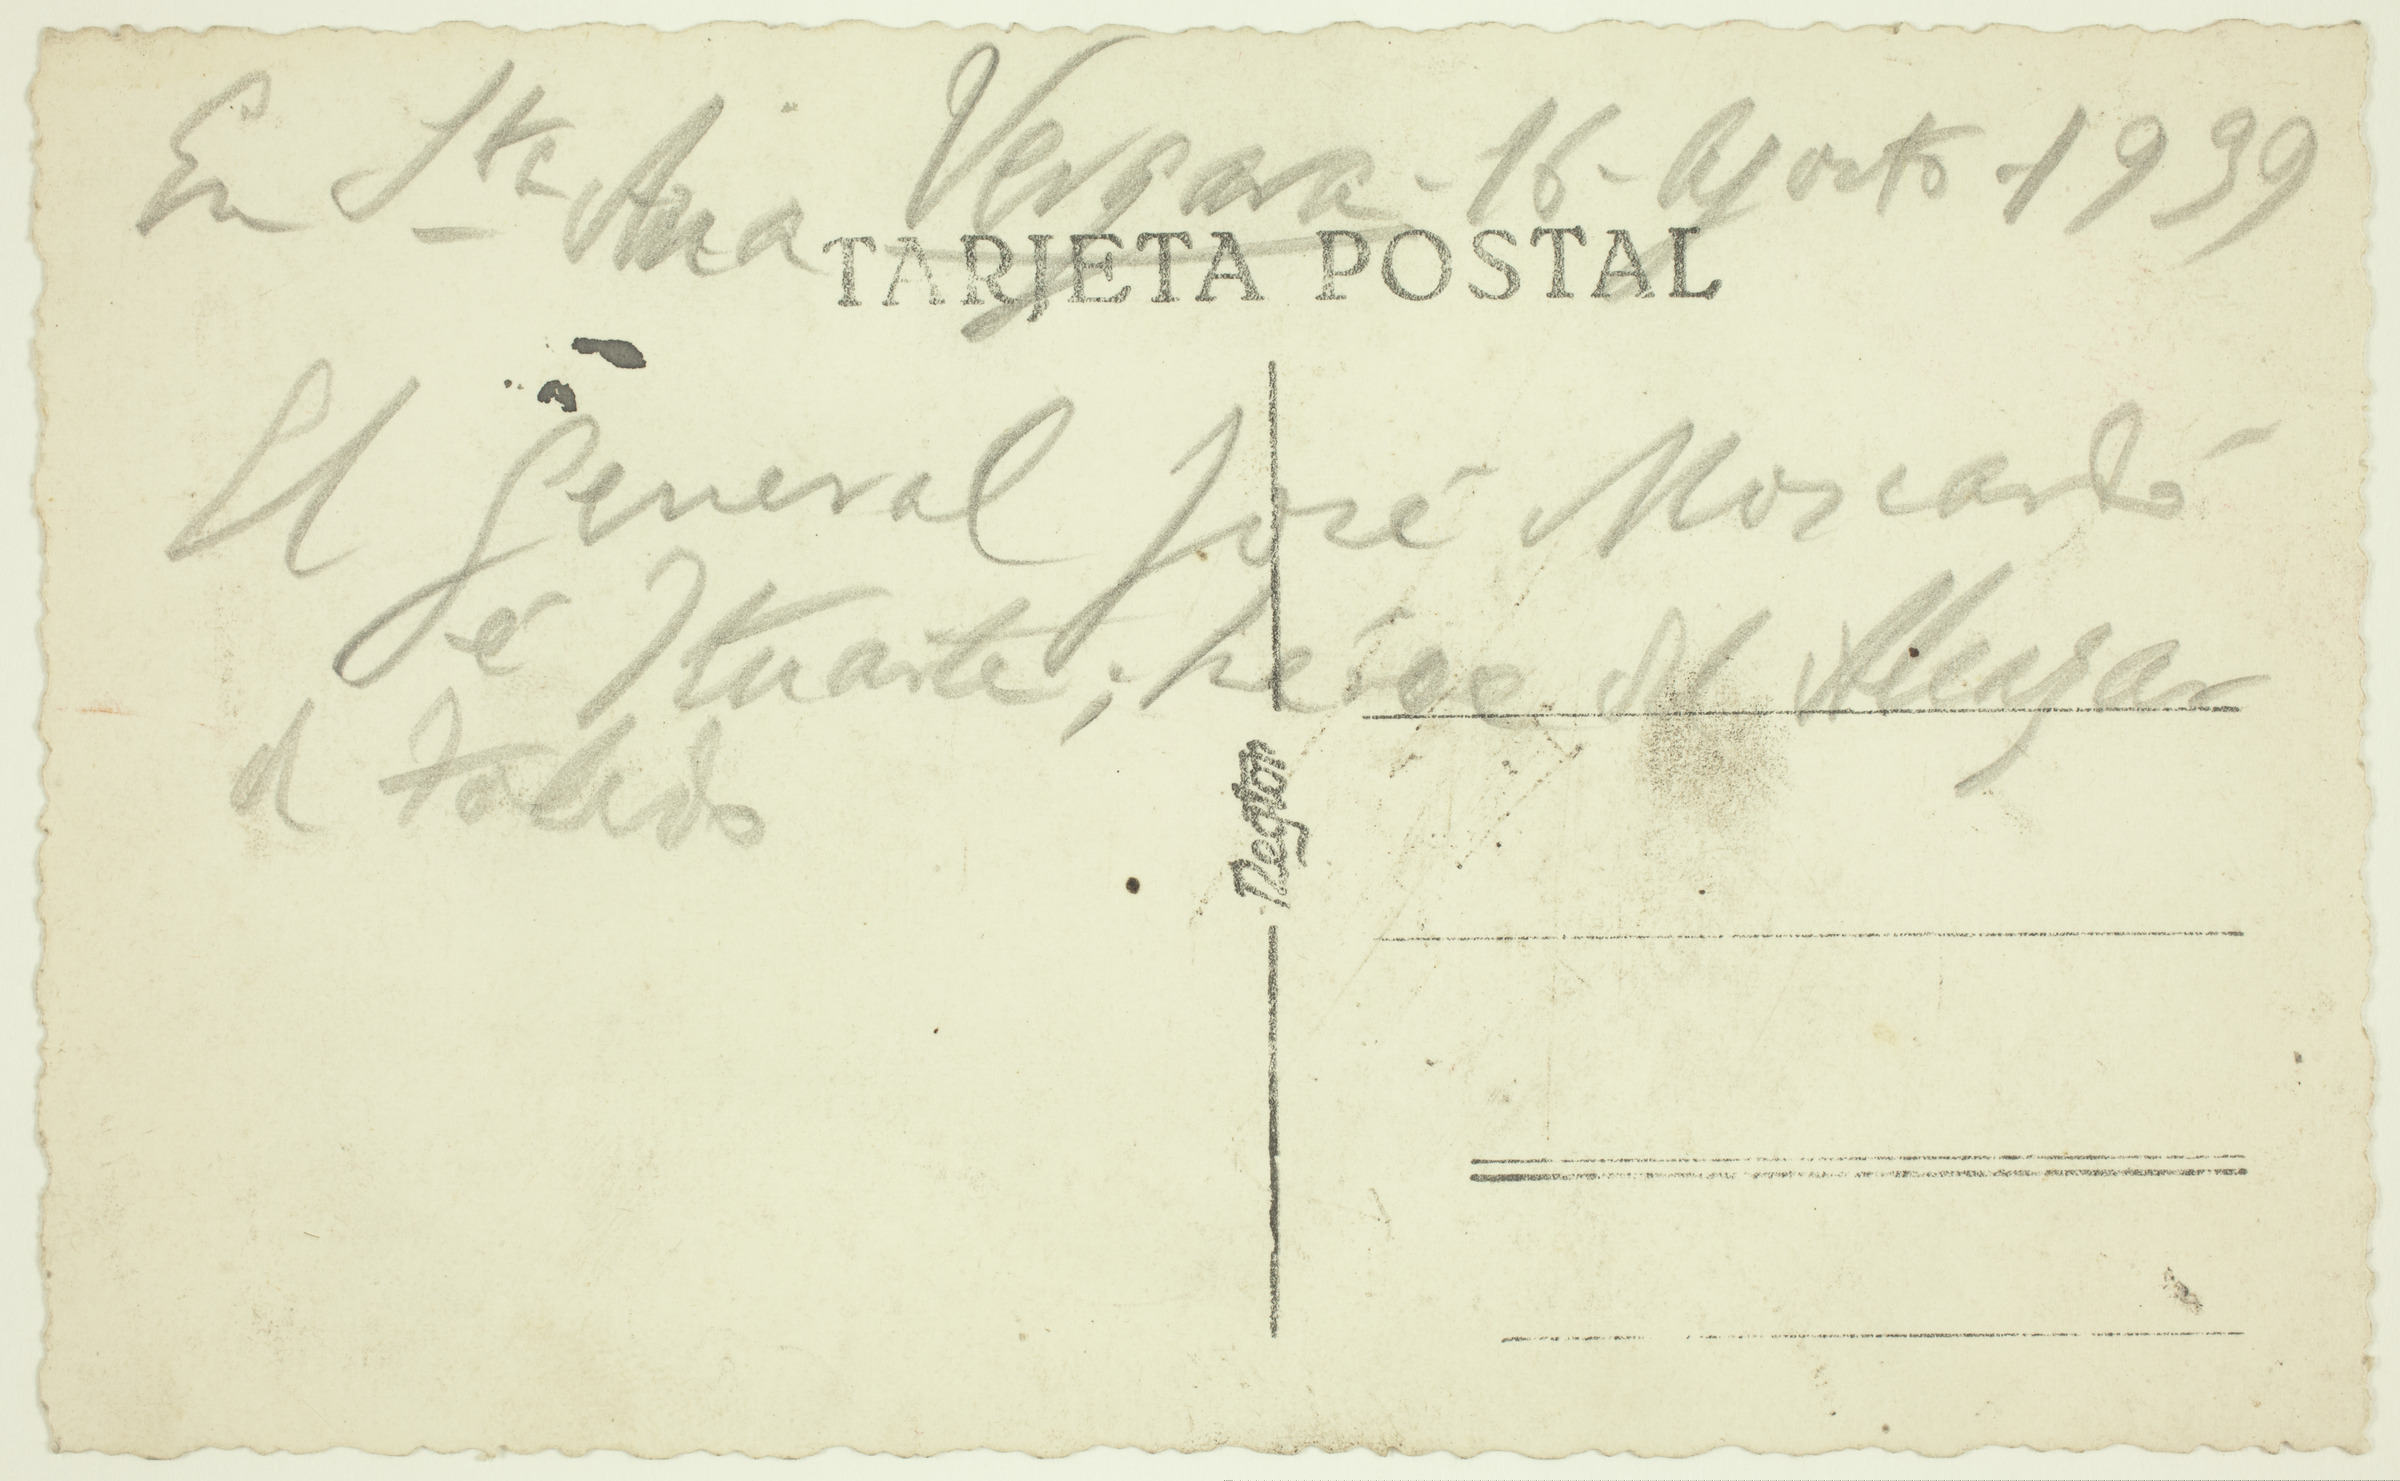 En Sta Ana Vergara - 16 - Agosto - 1939
TARJETA POSTAL
El General José Moscardó
é Ituarte; héroe del Alcazar
d Toledo
Negtor